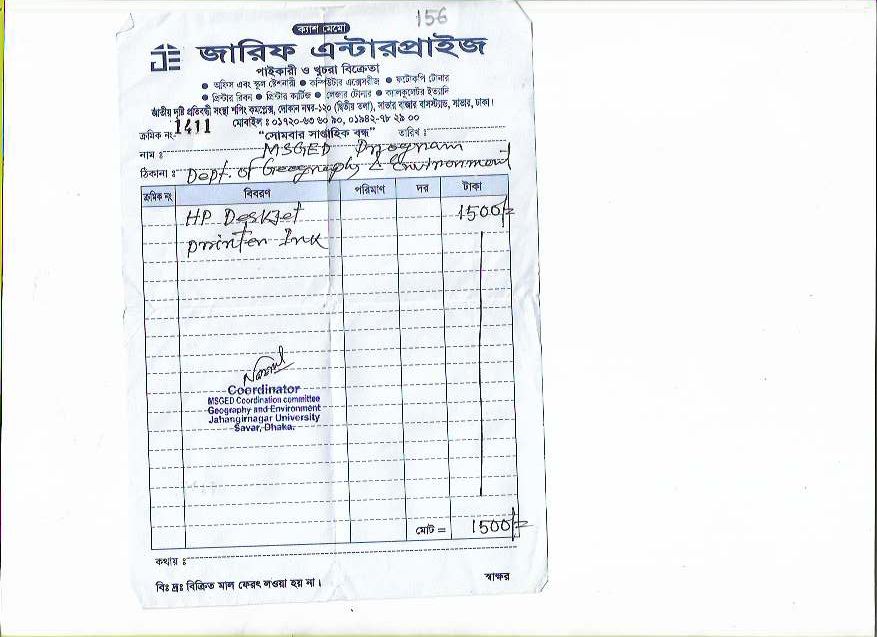 156
ক্যাশ মেমো
JE জারিফ এন্টারপ্রাইজ
পাইকারী ও খুচরা বিক্রেতা
● অফিস এবং স্কুল ষ্টেশনারী ● কম্পিউটার এক্সেসরীজ ● ফটোকপি টোনার
● প্রিন্টার রিবন ● প্রিন্টার কার্টিজ ● লেজার টোনার ● ক্যালকুলেটর ইত্যাদি
জাতীয় দৃষ্টি প্রতিবন্ধী সংস্থা শপিং কমপ্লেক্স, দোকান নম্বর-১২০ (দ্বিতীয় তলা), সাভার বাজার বাসস্ট্যান্ড, সাভার, ঢাকা।
মোবাইল : ০১৭২০-৬৩ ৬০ ৯০, ০১৯৪২-৭৮ ২৯ ০০
ক্রমিক নং- 1411 "সোমবার সাপ্তাহিক বন্ধ" তারিখ :
নাম : MSGED Program
ঠিকানা : Dept. of Geography & Environment
ক্রমিক নং বিবরণ পরিমাণ দর টাকা
HP Deskjet 1500/=
printer Ink
Coordinator
MSGED Coordination committee
Geography and Environment
Jahangirnagar University
Savar, Dhaka.
মোট = 1500/=
কথায় :
বিঃ দ্রঃ বিক্রিত মাল ফেরৎ লওয়া হয় না। স্বাক্ষর